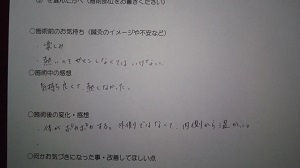 を選んだか(施術後必ずお書きください)
○施術前のお気持ち(鍼灸のイメージや不安など)
楽しみ
熱いのでがまんしなくては いけない
○施術中の感想
気持ちよくて、熱くなかった。
○施術後の変化・感想
体が ぽかぽかする。外側ではなくて、内側から温かい。
○何かお気づきになった事・改善してほしい点